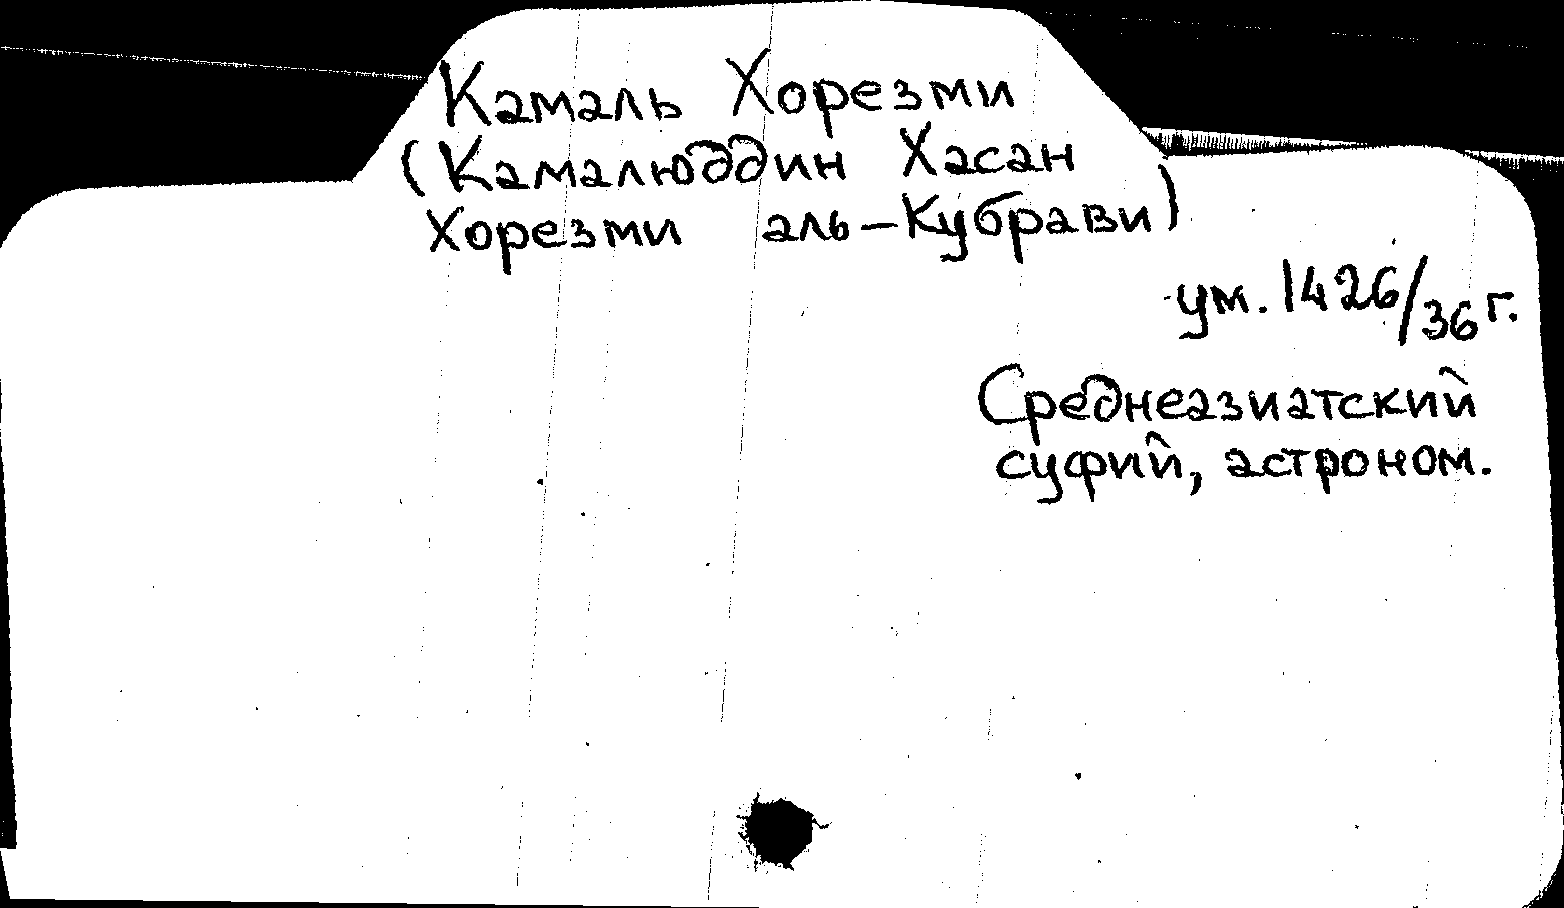 Камаль Хорезми
(Камалюддин Хасан
Хорезми аль-Кубрави)
ум. 1426/36 г.
Среднеазиатский
суфий, астроном.